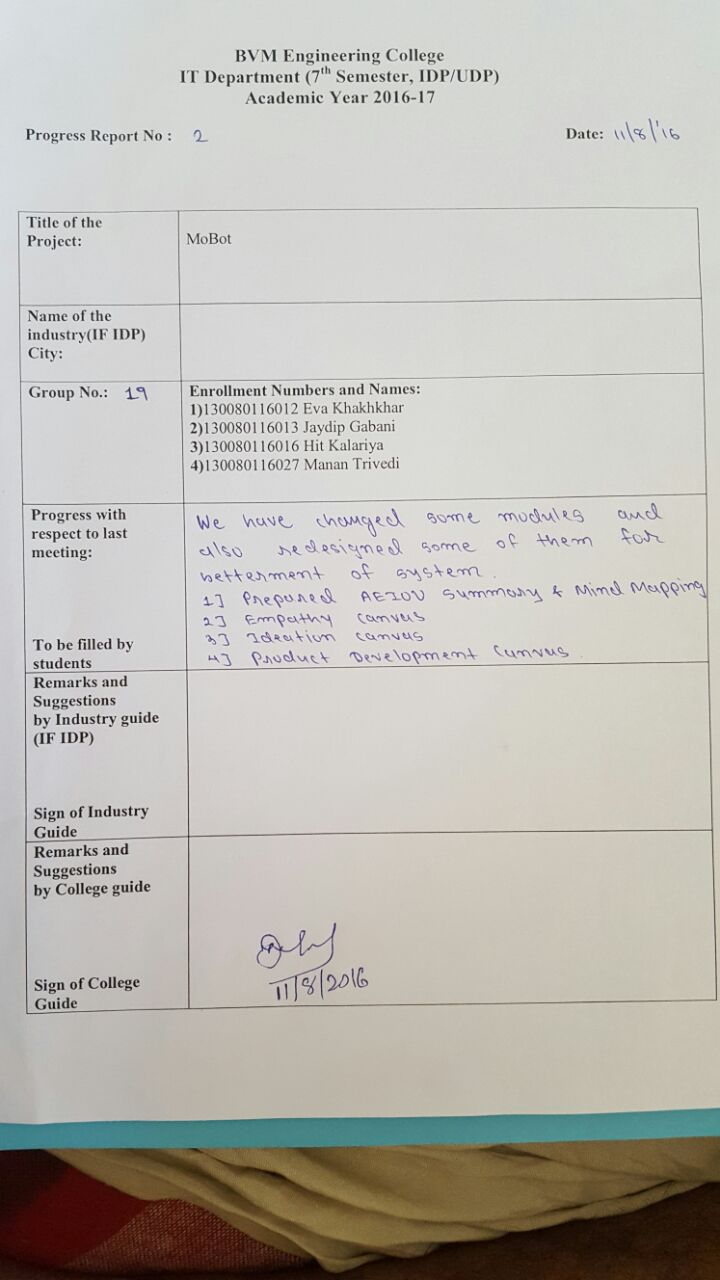 BVM Engineering College
IT Department (7th Semester, IDP/UDP)
Academic Year 2016-17
Progress Report No : 2
Date: 11/8/'16
Title of the
Project:
MoBot
Name of the
industry(IF IDP)
City:
Group No.: 19
Enrollment Numbers and Names:
1)130080116012 Eva Khakhkhar
2)130080116013 Jaydip Gabani
3)130080116016 Hit Kalariya
4)130080116027 Manan Trivedi
Progress with
respect to last
meeting:
To be filled by
students
We have changed some modules and
also redesigned some of them for
betterment of system.
1] Prepared AEIOU Summary & Mind Mapping
2] Empathy canvas
3] Ideation canvas
4] Product Development Canvas.
Remarks and
Suggestions
by Industry guide
(IF IDP)
Sign of Industry
Guide
Remarks and
Suggestions
by College guide
Sign of College
Guide
11/8/2016